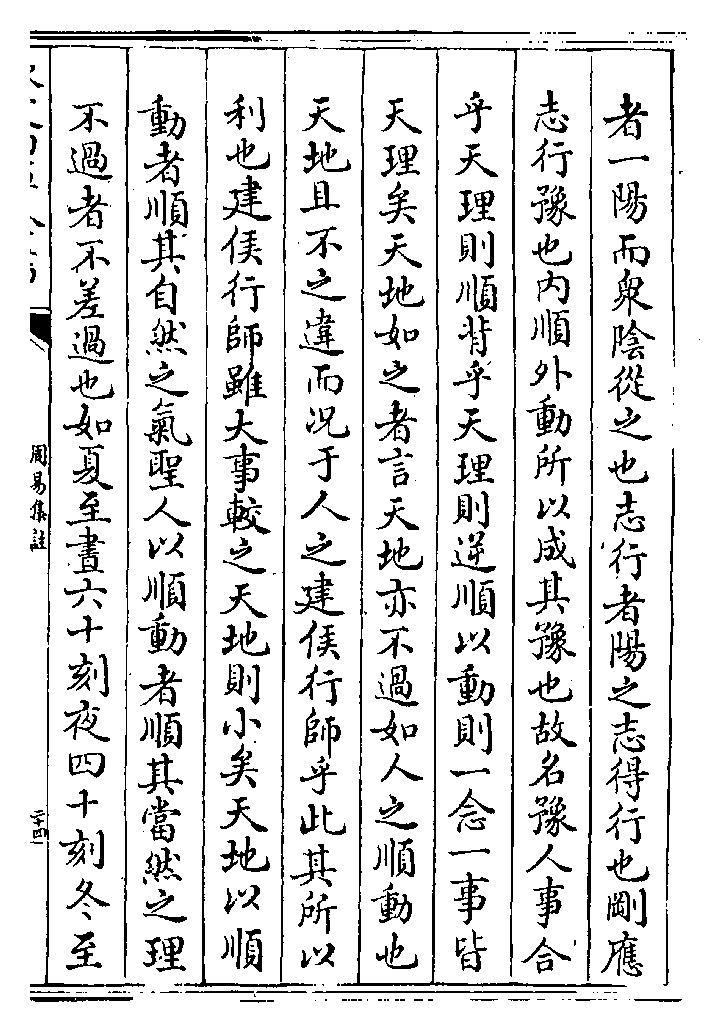 者一陽而衆陰從之也志行者陽之志得行也剛應
志行豫也内順外動所以成其豫也故名豫人事合
乎天理則順背乎天理則逆順以動則一念一事皆
天理矣天地如之者言天地亦不過如人之順動也
天地且不之違而况于人之建侯行師乎此其所以
利也建侯行師雖大事較之天地則小矣天地以順
動者順其自然之氣聖人以順動者順其當然之理
不過者不差過也如夏至晝六十刻夜四十刻冬至
周易集註
二十四